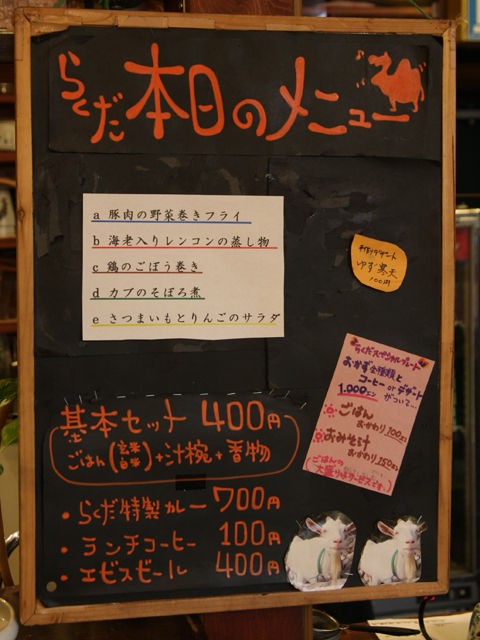 らくだ 本日のメニュー
a 豚肉の野菜巻きフライ
b 海老入りレンコンの蒸し物
c 鶏のごぼう巻き
d カブのそぼろ煮
e さつまいもとりんごのサラダ
手作りデザート
ゆず寒天
100円
らくだスペシャルプレート
おかず全種類と
コーヒー or デザート
1.000エン がついて…
ごはん
おかわり 100エン
おみそ汁
おかわり 150エン
(ごはんの
大盛りはサービスです。)
基本セット 400円
ごはん(玄米 白米)+汁椀+香物
・らくだ特製カレー 700円
・ランチコーヒー 100円
・エビスビール 400円